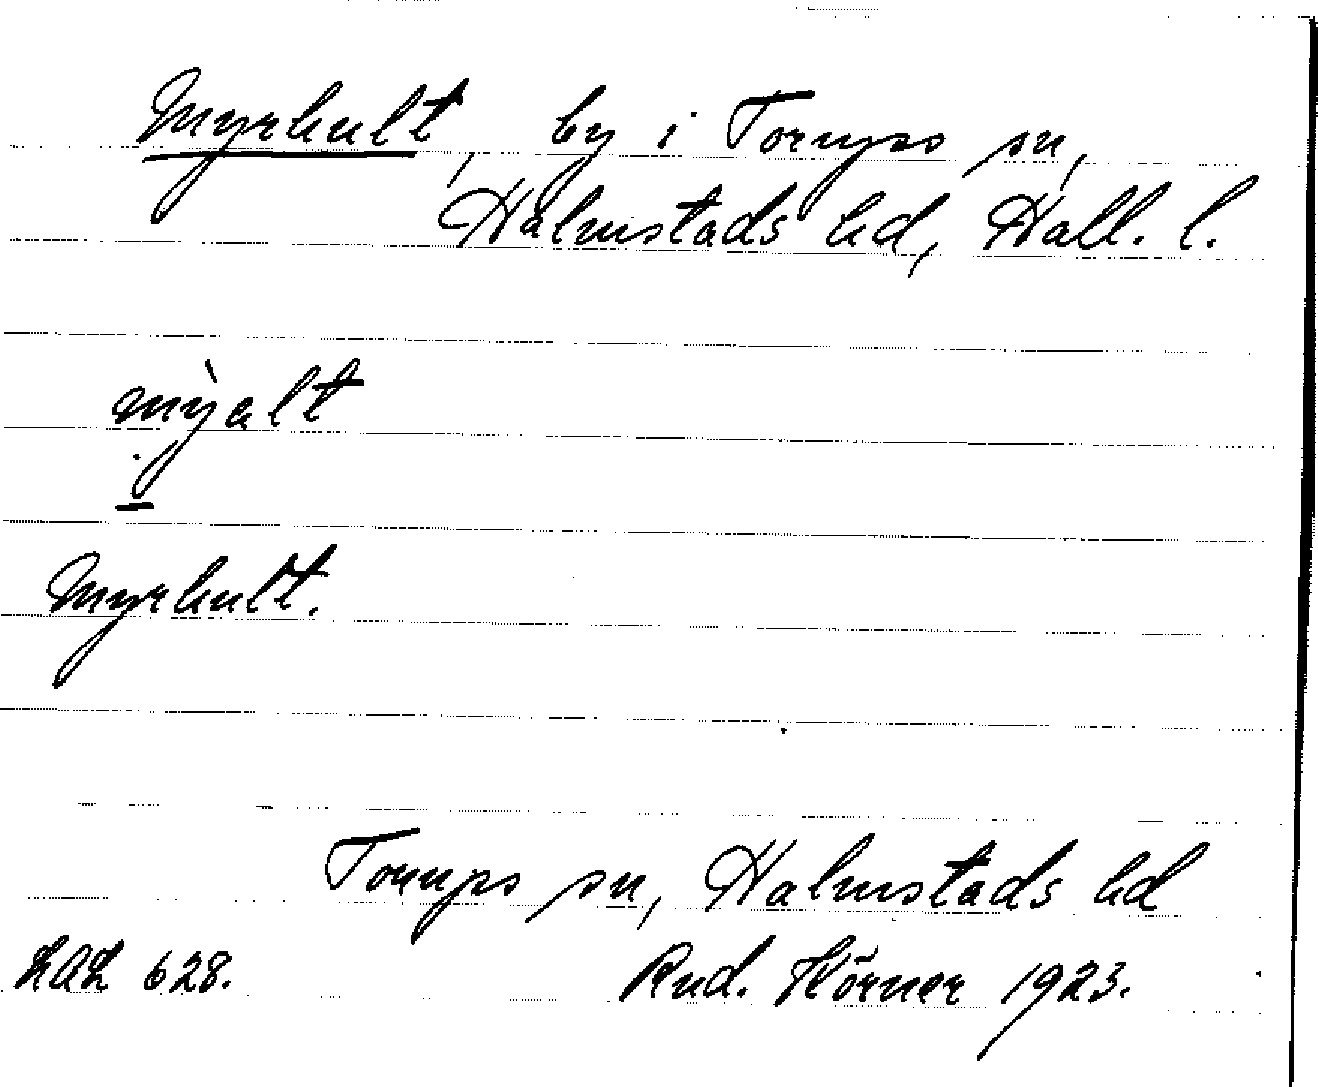 Myrhult, by i Torups sn,
Halmstads hd, Hall. l.
mỳalt
Myrhult.
Torups sn, Halmstads hd
LAL 628. Rud. Hörner 1923.